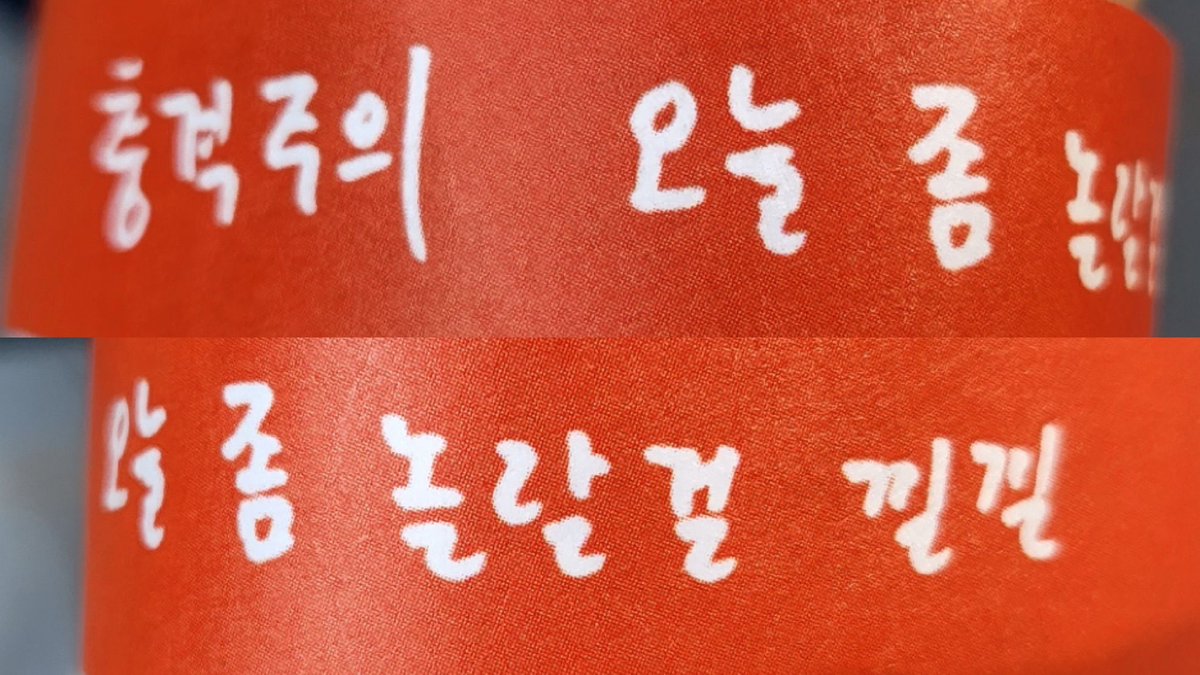 충격주의 오늘 좀 놀랄걸
오늘 좀 놀랄걸 낄낄